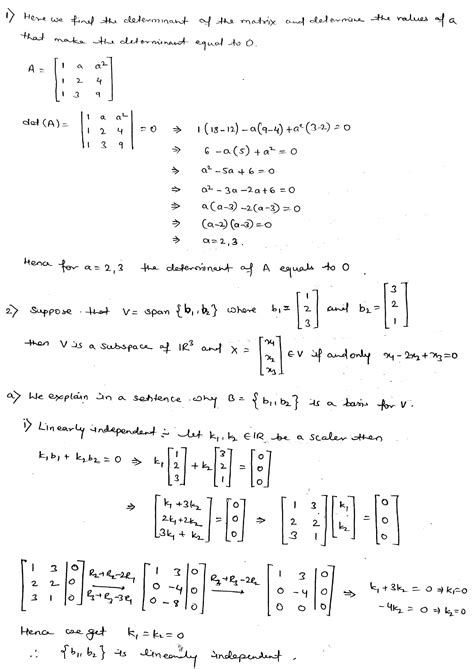 1) Here we find the determinant of the matrix and determine the values of a
that make the determinant equal to 0.
A = [1 a a²; 1 2 4; 1 3 9]
det(A) = |1 a a²; 1 2 4; 1 3 9| = 0 ⇒ 1(18-12) - a(9-4) + a²(3-2) = 0
⇒ 6 - a(5) + a² = 0
⇒ a² - 5a + 6 = 0
⇒ a² - 3a - 2a + 6 = 0
⇒ a(a-3) - 2(a-3) = 0
⇒ (a-2)(a-3) = 0
⇒ a = 2, 3.
Hence for a = 2, 3 the determinant of A equals to 0.
2) Suppose that V = span {b₁, b₂} where b₁ = [1; 2; 3] and b₂ = [3; 2; 1]
then V is a subspace of IR³ and X = [x₁; x₂; x₃] ∈ V if and only x₁ - 2x₂ + x₃ = 0
a) We explain in a sentence why B = {b₁, b₂} is a basis for V.
i) Linearly independent :- let k₁, k₂ ∈ IR be a scaler then
k₁b₁ + k₂b₂ = 0 ⇒ k₁[1; 2; 3] + k₂[3; 2; 1] = [0; 0; 0]
⇒ [k₁ + 3k₂; 2k₁ + 2k₂; 3k₁ + k₂] = [0; 0; 0] ⇒ [1 3; 2 2; 3 1][k₁; k₂] = [0; 0; 0]
[1 3 | 0; 2 2 | 0; 3 1 | 0] R₂→R₂-2R₁ R₃→R₃-3R₁ [1 3 | 0; 0 -4 | 0; 0 -8 | 0] R₃→R₃-2R₂ [1 3 | 0; 0 -4 | 0; 0 0 | 0] ⇒ k₁ + 3k₂ = 0 ⇒ k₁ = 0
-4k₂ = 0 ⇒ k₂ = 0
Hence we get k₁ = k₂ = 0
∴ {b₁, b₂} is linearly independent.